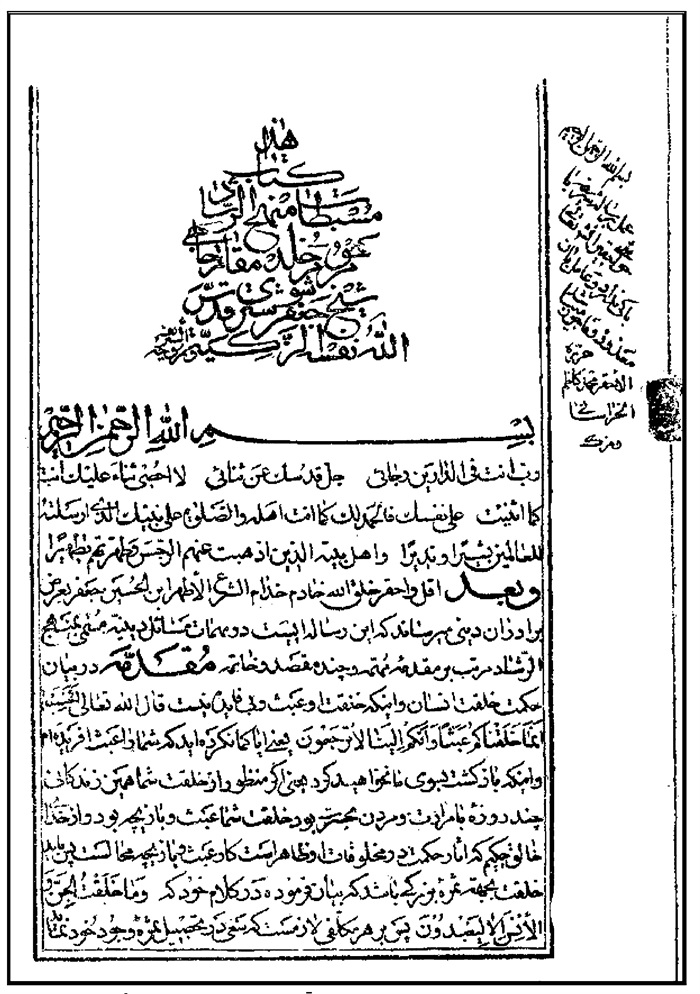 هذا
كتاب
مستطاب منهج الرشاد
مرحوم خلد مقام حاجی
شیخ جعفر شوشتری قدس سره
الله نفسه الزکیة
بسم الله الرحمن الرحیم
رب انت فی الدارین رجائی جل قدسك عن ثنائی لا احصی ثناء علیك انت
كما اثنیت علی نفسك فالحمد لك كما انت اهله والصلوة علی نبیك الذی ارسلته
للعالمین بشیرا ونذیرا واهل بیته الذین اذهبت عنهم الرجس وطهرتهم تطهیرا
وبعد اقل واحقر خلق الله خادم خدام الشرع الاطهر ابن الحسین جعفر بعرض
برادران دینی میرساند که این رساله ایست در مهمات مسائل دینیه مسمی بمنهج
الرشاد مرتب بر مقدمه و چند مقصد و خاتمه مقدمه در بیان
حکمت خلقت انسان و اینکه خلقت او عبث و بی فایده نیست قال الله تعالی افحسبتم
انما خلقناکم عبثا وانکم الینا لا ترجعون یعنی ایا گمان کرده اید که شما را عبث افریده ام
و اینکه باز گشت بسوی ما نخواهید کرد یعنی اگر منظور از خلقت شما همین زندگانی
چند روزه با مرارت و مردن بود خلقت شما عبث و بازیچه بود و از خدا
خالق حکیم که اثار حکمت در مخلوقات او ظاهر است کار عبث و بازیچه محالست پس باید
خلقت بجهة ثمره بزرگی باشد که بیان فرموده در کلام خود که وما خلقت الجن و
الانس الا لیعبدون پس بر هر مکلفی لازمست که سعی در تحصیل ثمره وجود خود نماید
بسم الله الرحمن الرحیم
الاحقر محمد کاظم
الخراسانی